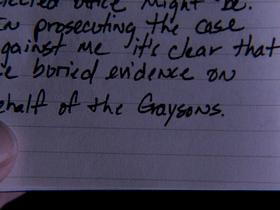 elected office might be.
In prosecuting the case
against me it's clear that
he buried evidence on
behalf of the Graysons.